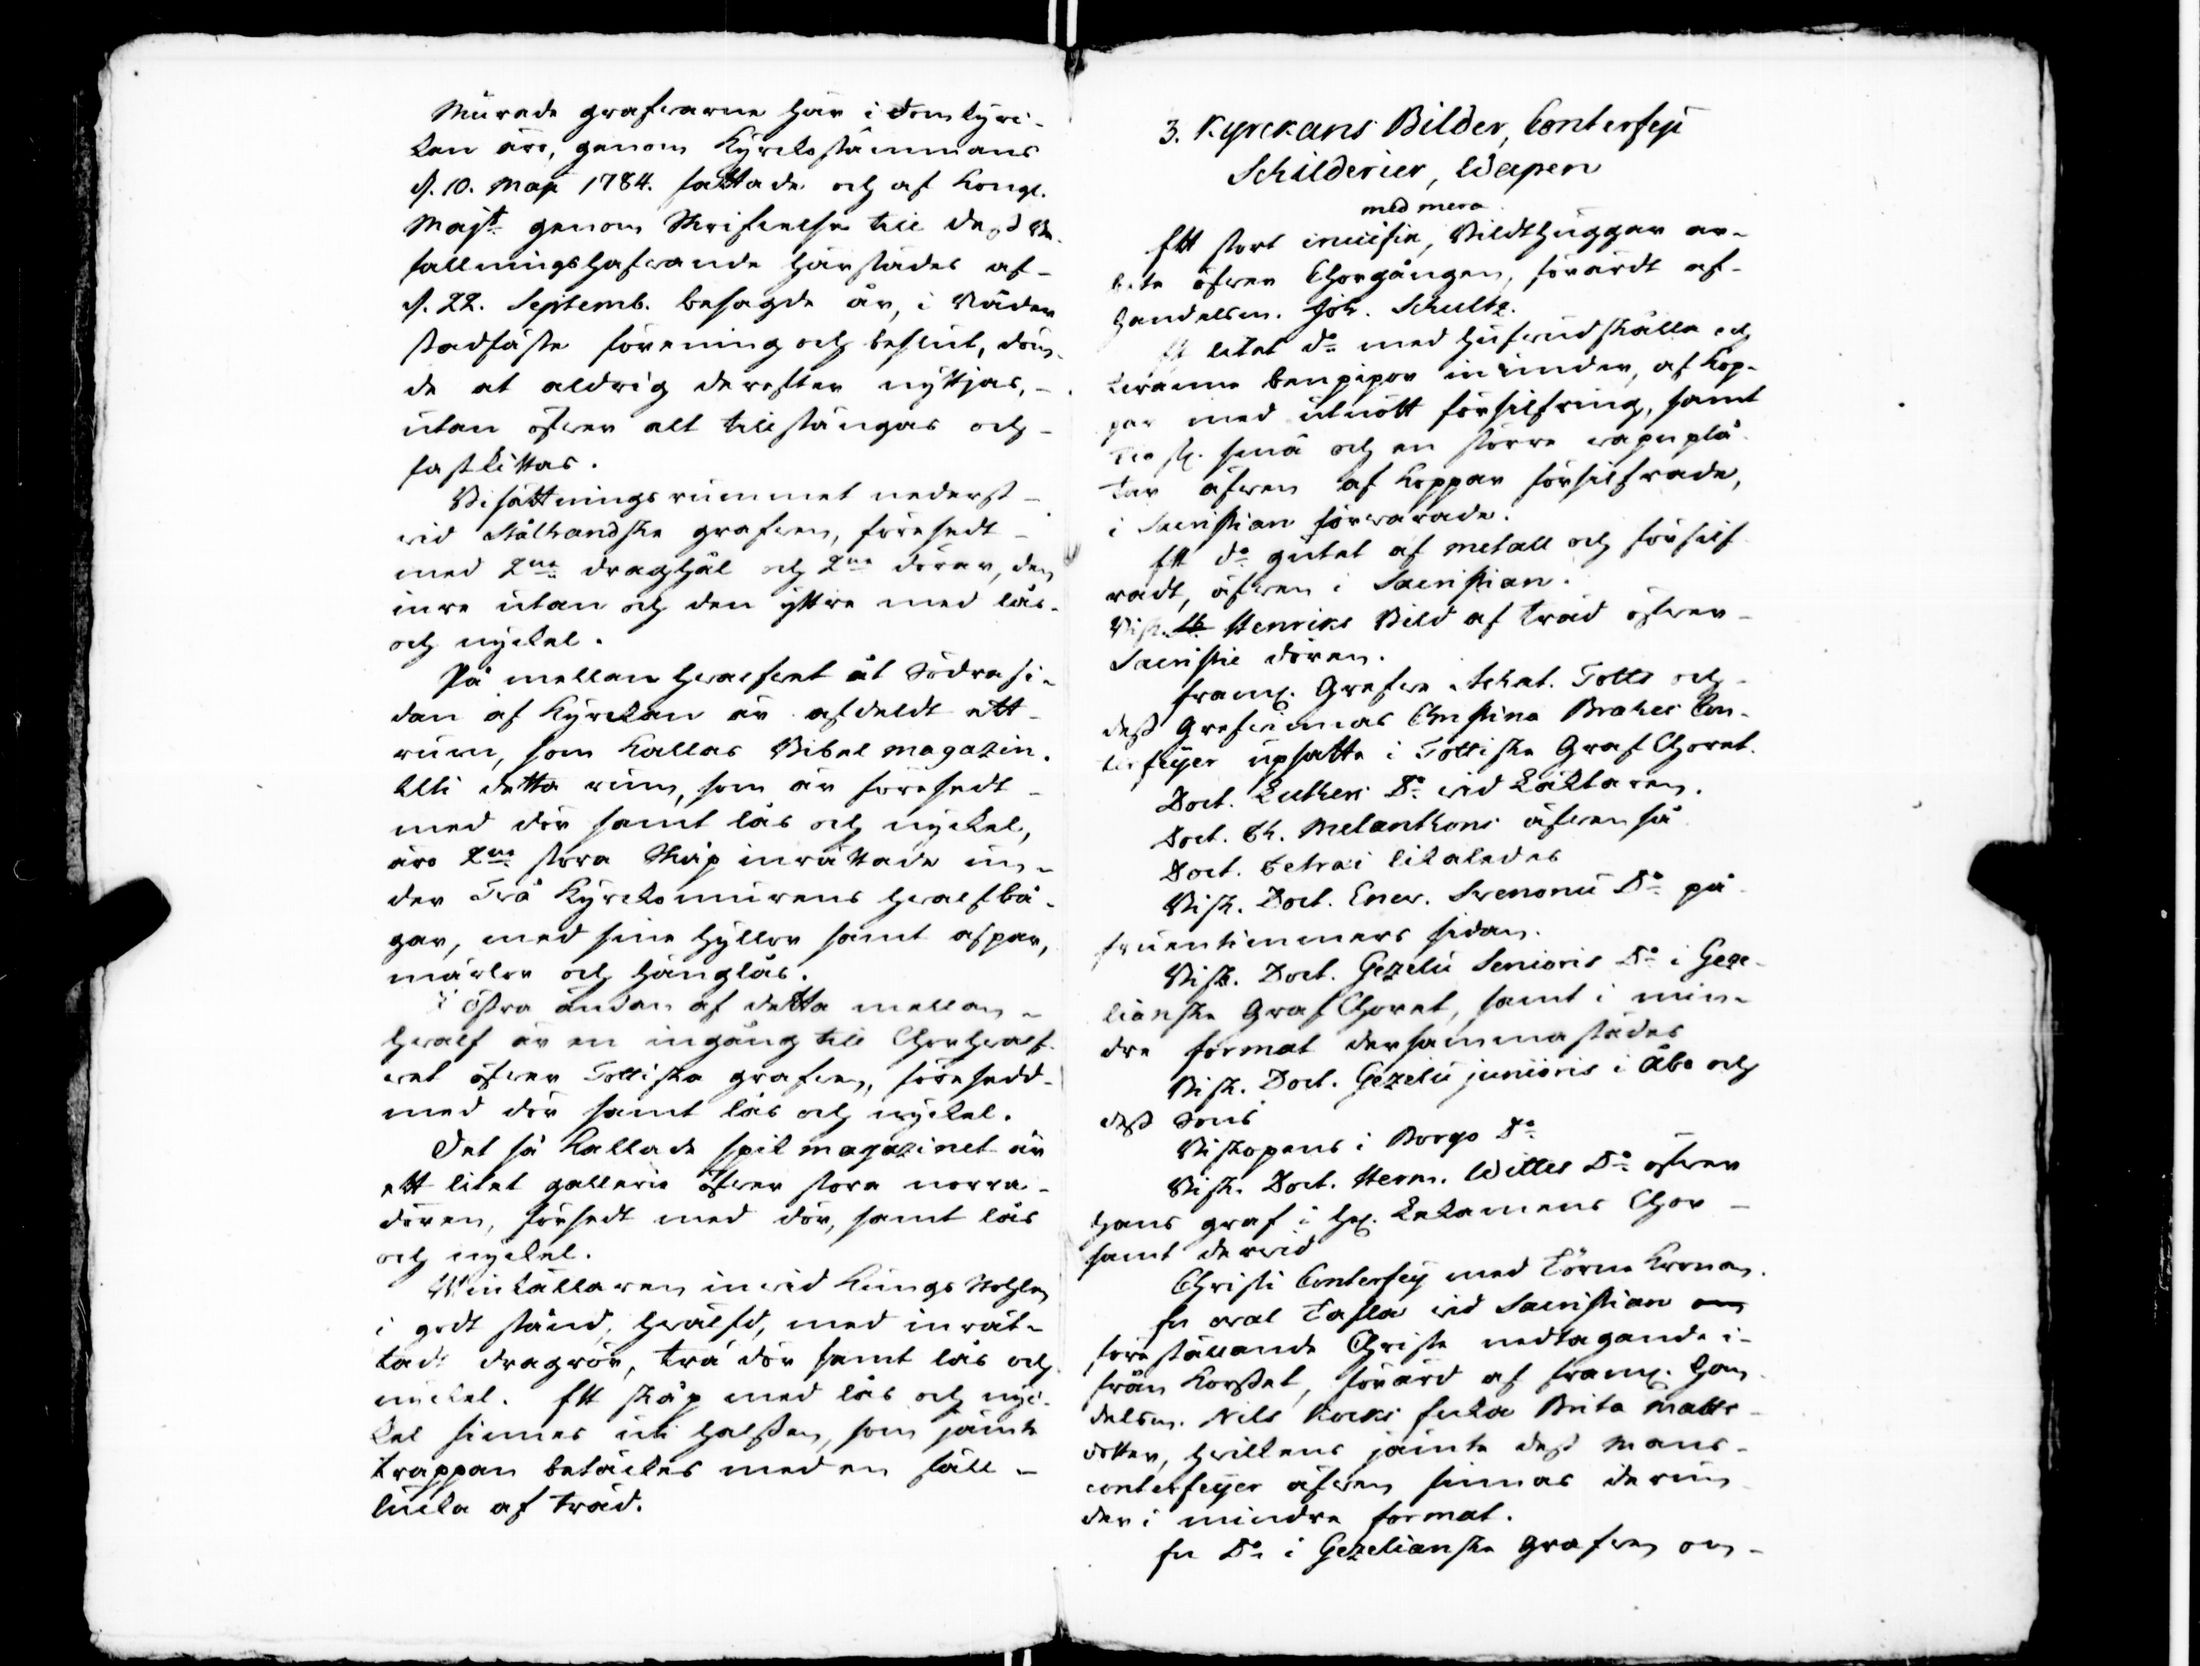 Murade grafwarne här i Domkyrc-
kan äro, genom Kyrckostämmans
d. 10. Maji 1784. fattade och af Kongl.
Maj:t genom Skrifwelse till dess Be-
fallningshafwande härstädes af-
d. 22. Septemb. besagde år, i Nåder
stadfäste förening och beslut, döm-
de at aldrig derefter nyttjas,-
utan öfwer alt tillstängas och-
fastkittas.
Bisättningsrummet nederst-
wid Stålhandske grafwen, försedt-
med 2ne draghål och 2ne dörar, den
inre utan och den yttre med lås-
och nyckel.
På mellan hwalfwet åt Södra si-
dan af Kyrckan är afdeldt ett-
rum, som kallas Bibel magazin.
Uti detta rum, som är försedt-
med dör samt lås och nyckel,
äro 2ne stora Skåp inrättade un-
der Två Kyrckomurens hwalfbå-
gar, med sine hyllor samt aspar,
märlor och hänglås.
i östra ändan af detta mellan-
hwalf är en ingång till Chorhwalf-
wet öfwer Tottiska grafwen, försedd-
med dör samt lås och nyckel.
Det så kallade spik magazinet är
ett litet gallerie öfwer stora norra-
dören, försedt med dör, samt lås
och nyckel.
Winkällaren inwid Kungs Stohlen
i godt stånd, hwälfd, med inrät-
tadt dragrör, trä dör samt lås och
nyckel. Ett skåp med lås och nyc-
kel finnes uti halsen, som jämte
trappan betäckes med en fäll-
lucka af träd.
3. Kyrckans Bilder, Conterfej
Schilderier, Wapen
med mera
Ett stort crucifix, Bildthuggar ar-
bete öfwer Chorgången, förärdt af-
Handelsm. Joh. Schultz.
Et litet do med hufwudskålle och
twänne benpipor inunder, af Kop-
par med utnött försilfring, samt
st. små och en större wapnplå-
tar äfwen af Koppar försilfrade,
i Sacristian förwarade.
Ett do gutet af metall och försilf-
radt, äfwen i Sacristian.
Bisk. St Henriks Bild af träd öfwer-
Sacristie dören.
Framl. Grefwe Achat. Totts och-
dess Grefwinnas Christina Brahes Con-
terfeyer upsatte i Tottiske Graf Choret.
Doct. Lutheri Do wid Läktaren.
Doct. Ph. Melanthons äfwen så
Doct. Petræi likaledes
Bisk. Doct. Enew. Swenonii Do på
fruentimmers sidan.
Bisk. Doct. Gezelii Senioris Do i Geze-
lianske Graf Choret, samt i min-
dre format dersammastädes
Bisk. Doct. Gezelii junioris i Åbo och
dess Sons
Biskopens i Borgo Do
Bisk. Doct. Herm. Wittes Do öfwer
hans graf i hel. Lekamens Chor-
samt derwid
Christi Conterfey med Törne Kronan.
En oval Tafla wid Sacristian
föreställande Christi nedtagande i-
från Korsset, förärd af framl. Han-
delsm. Nils Kocks Enka Brita Matts-
dotter, hwilkens jämte dess Mans-
conterfeyer äfwen finnas derun-
der i mindre format.
En Do i Gezelianske Grafwen om-